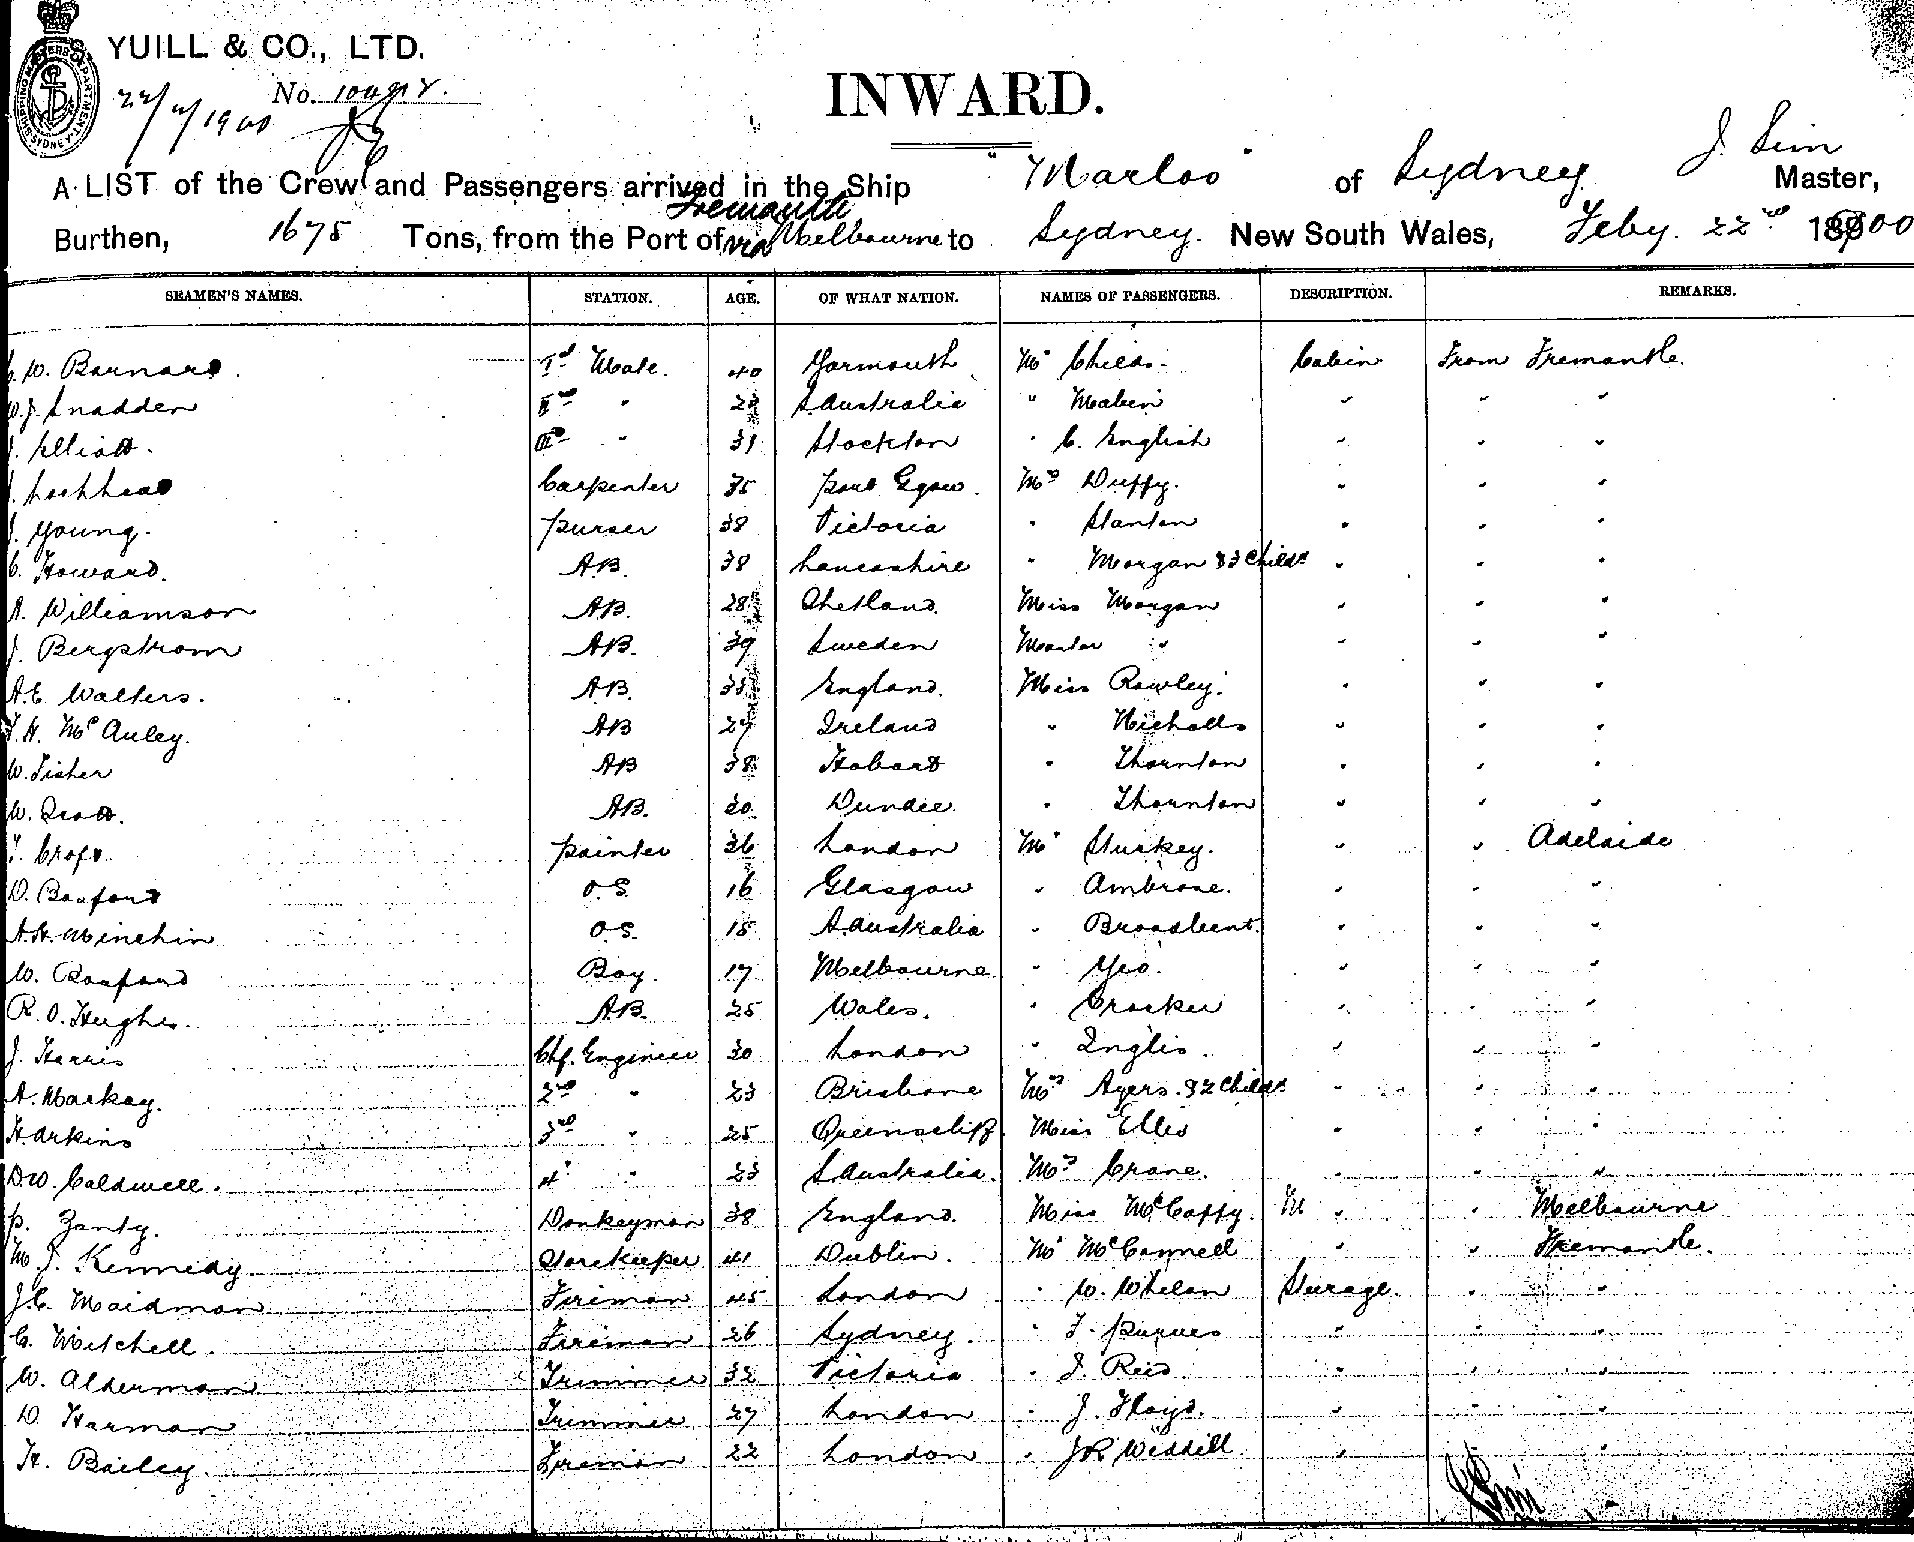 SHIPPING MASTERS DEPARTMENT SYDNEY
YUILL & CO., LTD.
No.
22/2/1900
INWARD.
A LIST of the Crew and Passengers arrived in the Ship "Marloo" of Sydney J. Sim Master,
Burthen, 1675 Tons, from the Port of Fremantle via Melbourne to Sydney. New South Wales, Feby. 22nd 1900
SEAMEN'S NAMES. STATION. AGE. OF WHAT NATION. NAMES OF PASSENGERS. DESCRIPTION. REMARKS.
W. Barnard. 1st Mate. 40 Yarmouth Mr Childs. Cabin From Fremantle.
W.J. Snadden IInd " S Australia " Maben " " "
J. Elliott. IIIrd " 31 Stockton " C. English " " "
J. Lochhead Carpenter 35 Port Mrs Duffy. " " "
J. Young. Purser 38 Victoria " Stanton " " "
C. Howard. A.B. 38 Lancashire " Morgan & 3 Childn " " "
A. Williamson AB. 28 Shetland. Miss Morgan " " "
J. Bergstrom AB. 39 Sweden Master " " " "
A.E. Walters. AB. England. Miss Rowley. " " "
T.H. McAuley. AB 27 Ireland " Nicholls " " "
W. Fisher AB 38 Hobart " Thornton " " "
W. Scott. AB. 20 Dundee " Thornton " " "
T. Croft. Painter 36 London Mr Sturkey. " " Adelaide
D. Boxford O.S. 16 Glasgow " Ambrose. " " "
A.H. Minchin O.S. 18 S. Australia " Broadbent. " " "
W. Boxford Boy. 17 Melbourne " Yeo. " " "
R.O. Hughes. AB. 25 Wales. " Crocker " " "
J. Harris Chf. Engineer 30 London " Inglis. " " "
A. Mackay. 2nd " 23 Brisbane Mrs Ayers. & 2 Childn " " "
Harkins 3rd " 25 Queenscliff Miss Ellis " " "
D.W. Caldwell. 4th " 23 S Australia. Mrs Crane. " " "
P. Zanty. Donkeyman 38 England. Miss McCaffy. " " Melbourne
M.J. Kennedy. Storekeeper 41 Dublin. Mr McConnell " " Fremantle.
J.C. Maidman Fireman 45 London " W. Whelan Sturage. " "
C. Mitchell. Fireman 26 Sydney. " T. Purves " " "
W. Alderman Trimmer 32 Victoria " J. Reid. " " "
D. Harman Trimmer 27 London " J. Floyd. " " "
H. Bailey. Fireman 22 London " J R Weddell. " "
J Sim